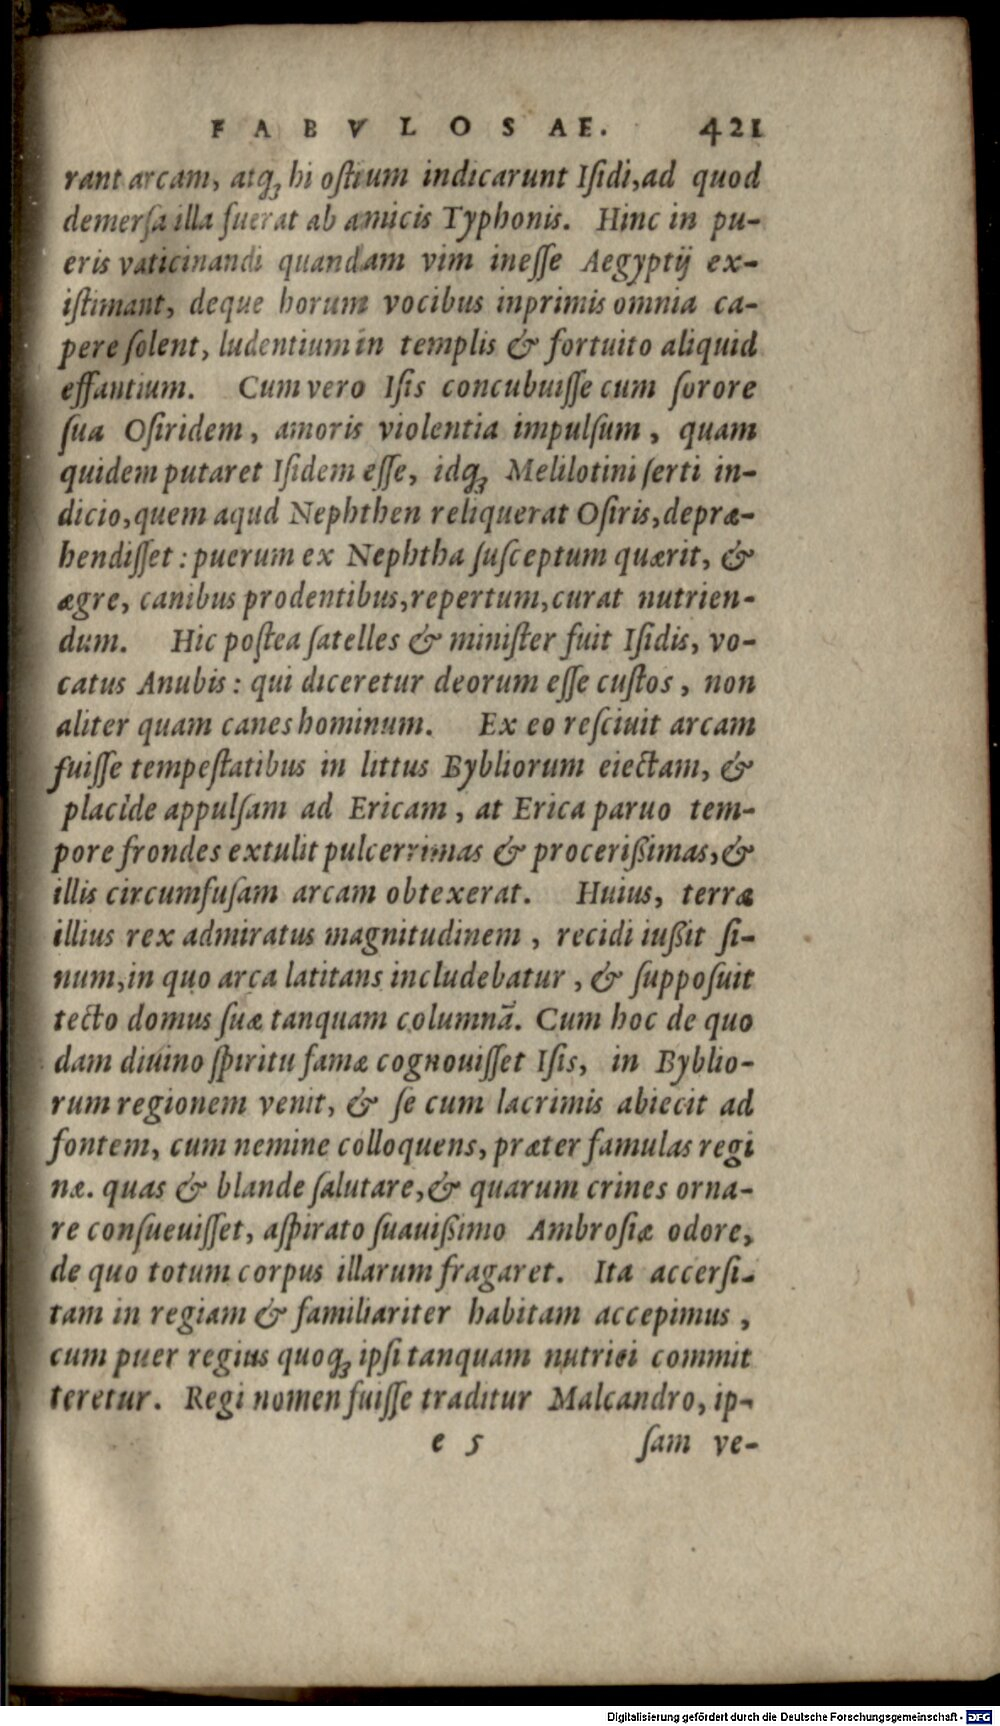 FABVLOSAE. 421
rant arcam, atq́ꝫ hi ostium indicarunt Isidi, ad quod
demersa illa fuerat ab amicis Typhonis. Hinc in pu-
eris vaticinandi quandam vim inesse Aegyptij ex-
istimant, deque horum vocibus inprimis omnia ca-
pere solent, ludentium in templis & fortuito aliquid
effantium. Cum vero Isis concubuisse cum sorore
sua Osiridem, amoris violentia impulsum, quam
quidem putaret Isidem esse, idq́ꝫ Melilotini serti in-
dicio, quem aqud Nephthen reliquerat Osiris, depræ-
hendisset: puerum ex Nephtha susceptum quærit, &
ægre, canibus prodentibus, repertum, curat nutrien-
dum. Hic postea satelles & minister fuit Isidis, vo-
catus Anubis: qui diceretur deorum esse custos, non
aliter quam canes hominum. Ex eo resciuit arcam
fuisse tempestatibus in littus Bybliorum eiectam, &
placide appulsam ad Ericam, at Erica paruo tem-
pore frondes extulit pulcerrimas & procerißimas, &
illis circumfusam arcam obtexerat. Huius, terræ
illius rex admiratus magnitudinem, recidi iußit si-
num, in quo arca latitans includebatur, & supposuit
tecto domus suæ tanquam columnã. Cum hoc de quo
dam diuino spiritu famæ cognouisset Isis, in Byblio-
rum regionem venit, & se cum lacrimis abiecit ad
fontem, cum nemine colloquens, præter famulas regi
næ. quas & blande salutare, & quarum crines orna-
re consueuisset, aspirato suauißimo Ambrosiæ odore,
de quo totum corpus illarum fragaret. Ita accersi-
tam in regiam & familiariter habitam accepimus,
cum puer regius quoq́ꝫ ipsi tanquam nutrici commit
teretur. Regi nomen fuisse traditur Malcandro, ip-
e 5 sam ve-
Digitalisierung gefördert durch die Deutsche Forschungsgemeinschaft - DFG